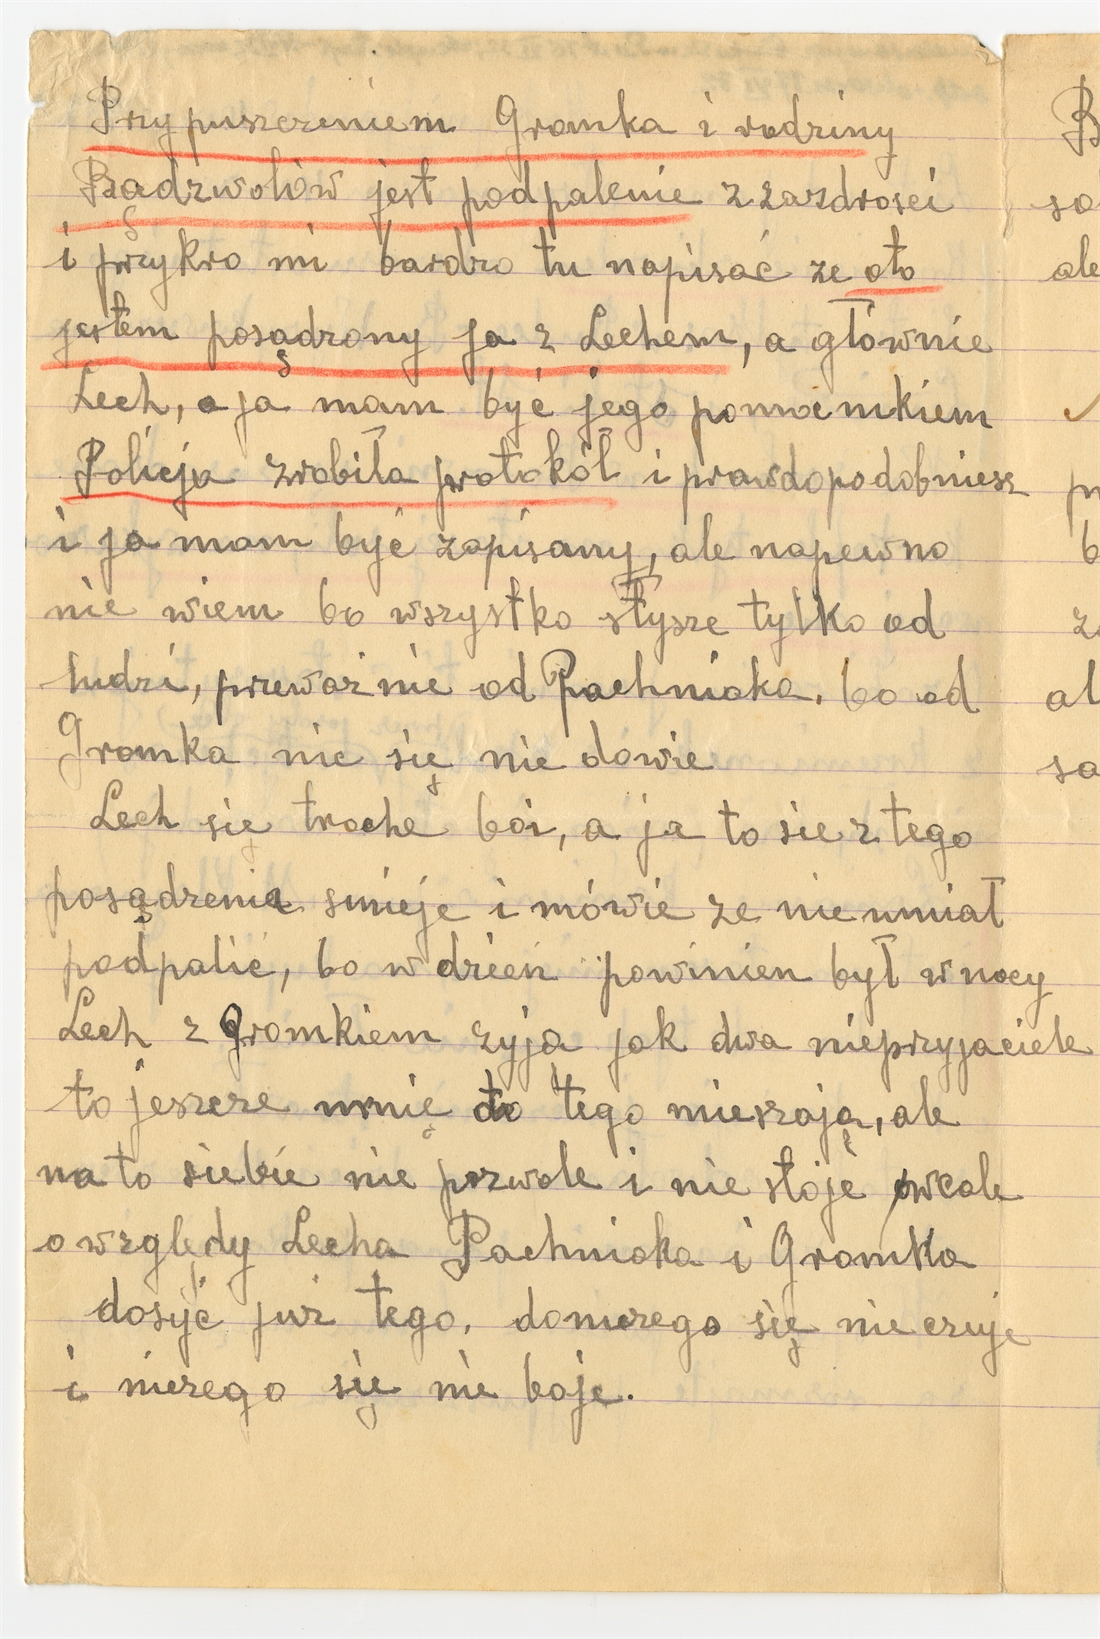 Przypuszczeniem Gromka i rodziny
Rządzwołów jest podpalenie z zazdrosci
i przykro mi bardzo tu napisać ze oto
jestem posądzony ja z Lechem, a głównie
Lech, a ja mam być jego pomocnikiem
Policja zrobiła protokół i prawdopodobniesz
i ja mam być zapisany, ale napewno
nie wiem bo wszystko słysze tylko od
ludzi, przeważnie od Pachniaka, bo od
Gromka nic się nie dowie
Lech się troche boi, a ja to sie z tego
posądzenia smieje i mówie ze nie umiał
podpalić, bo w dzień powinien był w nocy
Lech z Gromkiem zyją jak dwa nieprzyjaciele
to jeszcze mnię do tego mieszają, ale
na to siebie nie pozwole i nie stoje wcale
o względy Lecha Pachniaka i Gromka
dosyć juz tego, do niczego się nie czuje
i niczego się nie boje.
B
so
ale
pr
b
za
al
sa